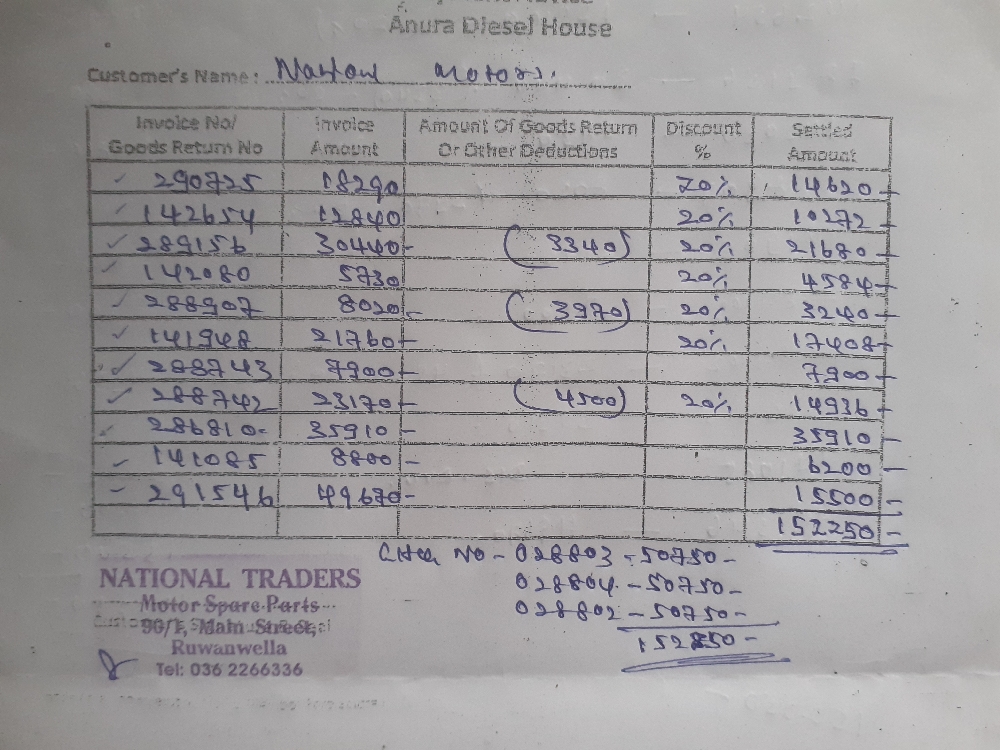 Anura Diesel House
Customer's Name: Motors.
Invoice No/ Goods Return No Invoice Amount Amount Of Goods Return Or Other Deductions Discount % Settled Amount
290725 18290 20% 14620-
142654 12840 20% 10272-
289156 30440- (3340) 20% 21680-
142080 5730 20% 4584-
288907 8020- (3970) 20% 3240-
141948 21760- 20% 17408-
288743 7900- 7900-
288742 23170- (4500) 20% 14936-
286810- 35910- 35910-
141085 8800- 6200-
291546 49670- 15500-
152250-
NO - 028803 - 50750-
028804 - 50750-
028802 - 50750-
NATIONAL TRADERS
Motor Spare Parts
90/1, Main Street,
Ruwanwella
Tel: 036 2266336